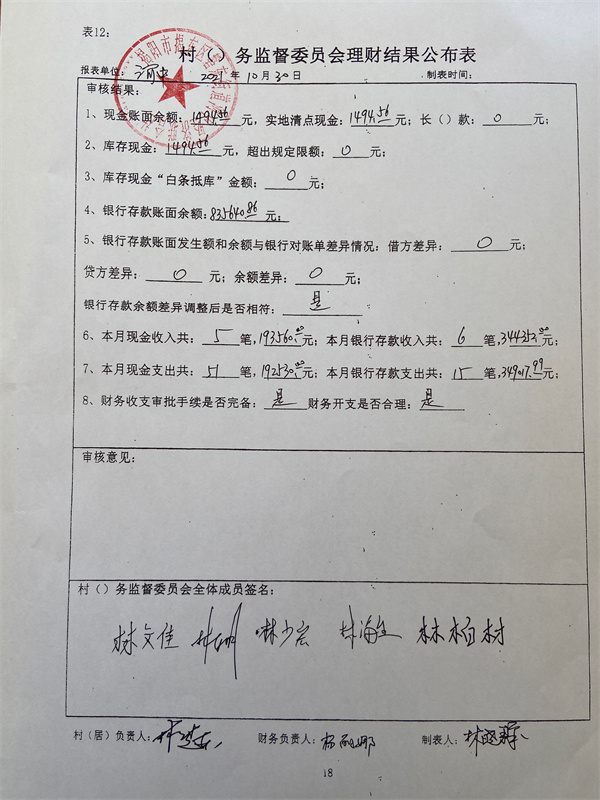 表12:
村（）务监督委员会理财结果公布表
报表单位: 2021年10月30日 制表时间:
审核结果:
1、现金账面余额: 1494.56元, 实地清点现金: 1494.56元; 长（）款: 0元;
2、库存现金: 1494.56元, 超出规定限额: 0元;
3、库存现金“白条抵库”金额: 0元;
4、银行存款账面余额: 835640.86元;
5、银行存款账面发生额和余额与银行对账单差异情况: 借方差异: 0元;
贷方差异: 0元; 余额差异: 0元;
银行存款余额差异调整后是否相符: 是
6、本月现金收入共: 5笔, 193560.00元; 本月银行存款收入共: 6笔, 344353.00元;
7、本月现金支出共: 51笔, 192530.00元; 本月银行存款支出共: 15笔, 349017.99元;
8、财务收支审批手续是否完备: 是 财务开支是否合理: 是
审核意见:
村（）务监督委员会全体成员签名:
林文佳 林少宏 林海生 林柏材
村（居）负责人: 财务负责人: 制表人:
18